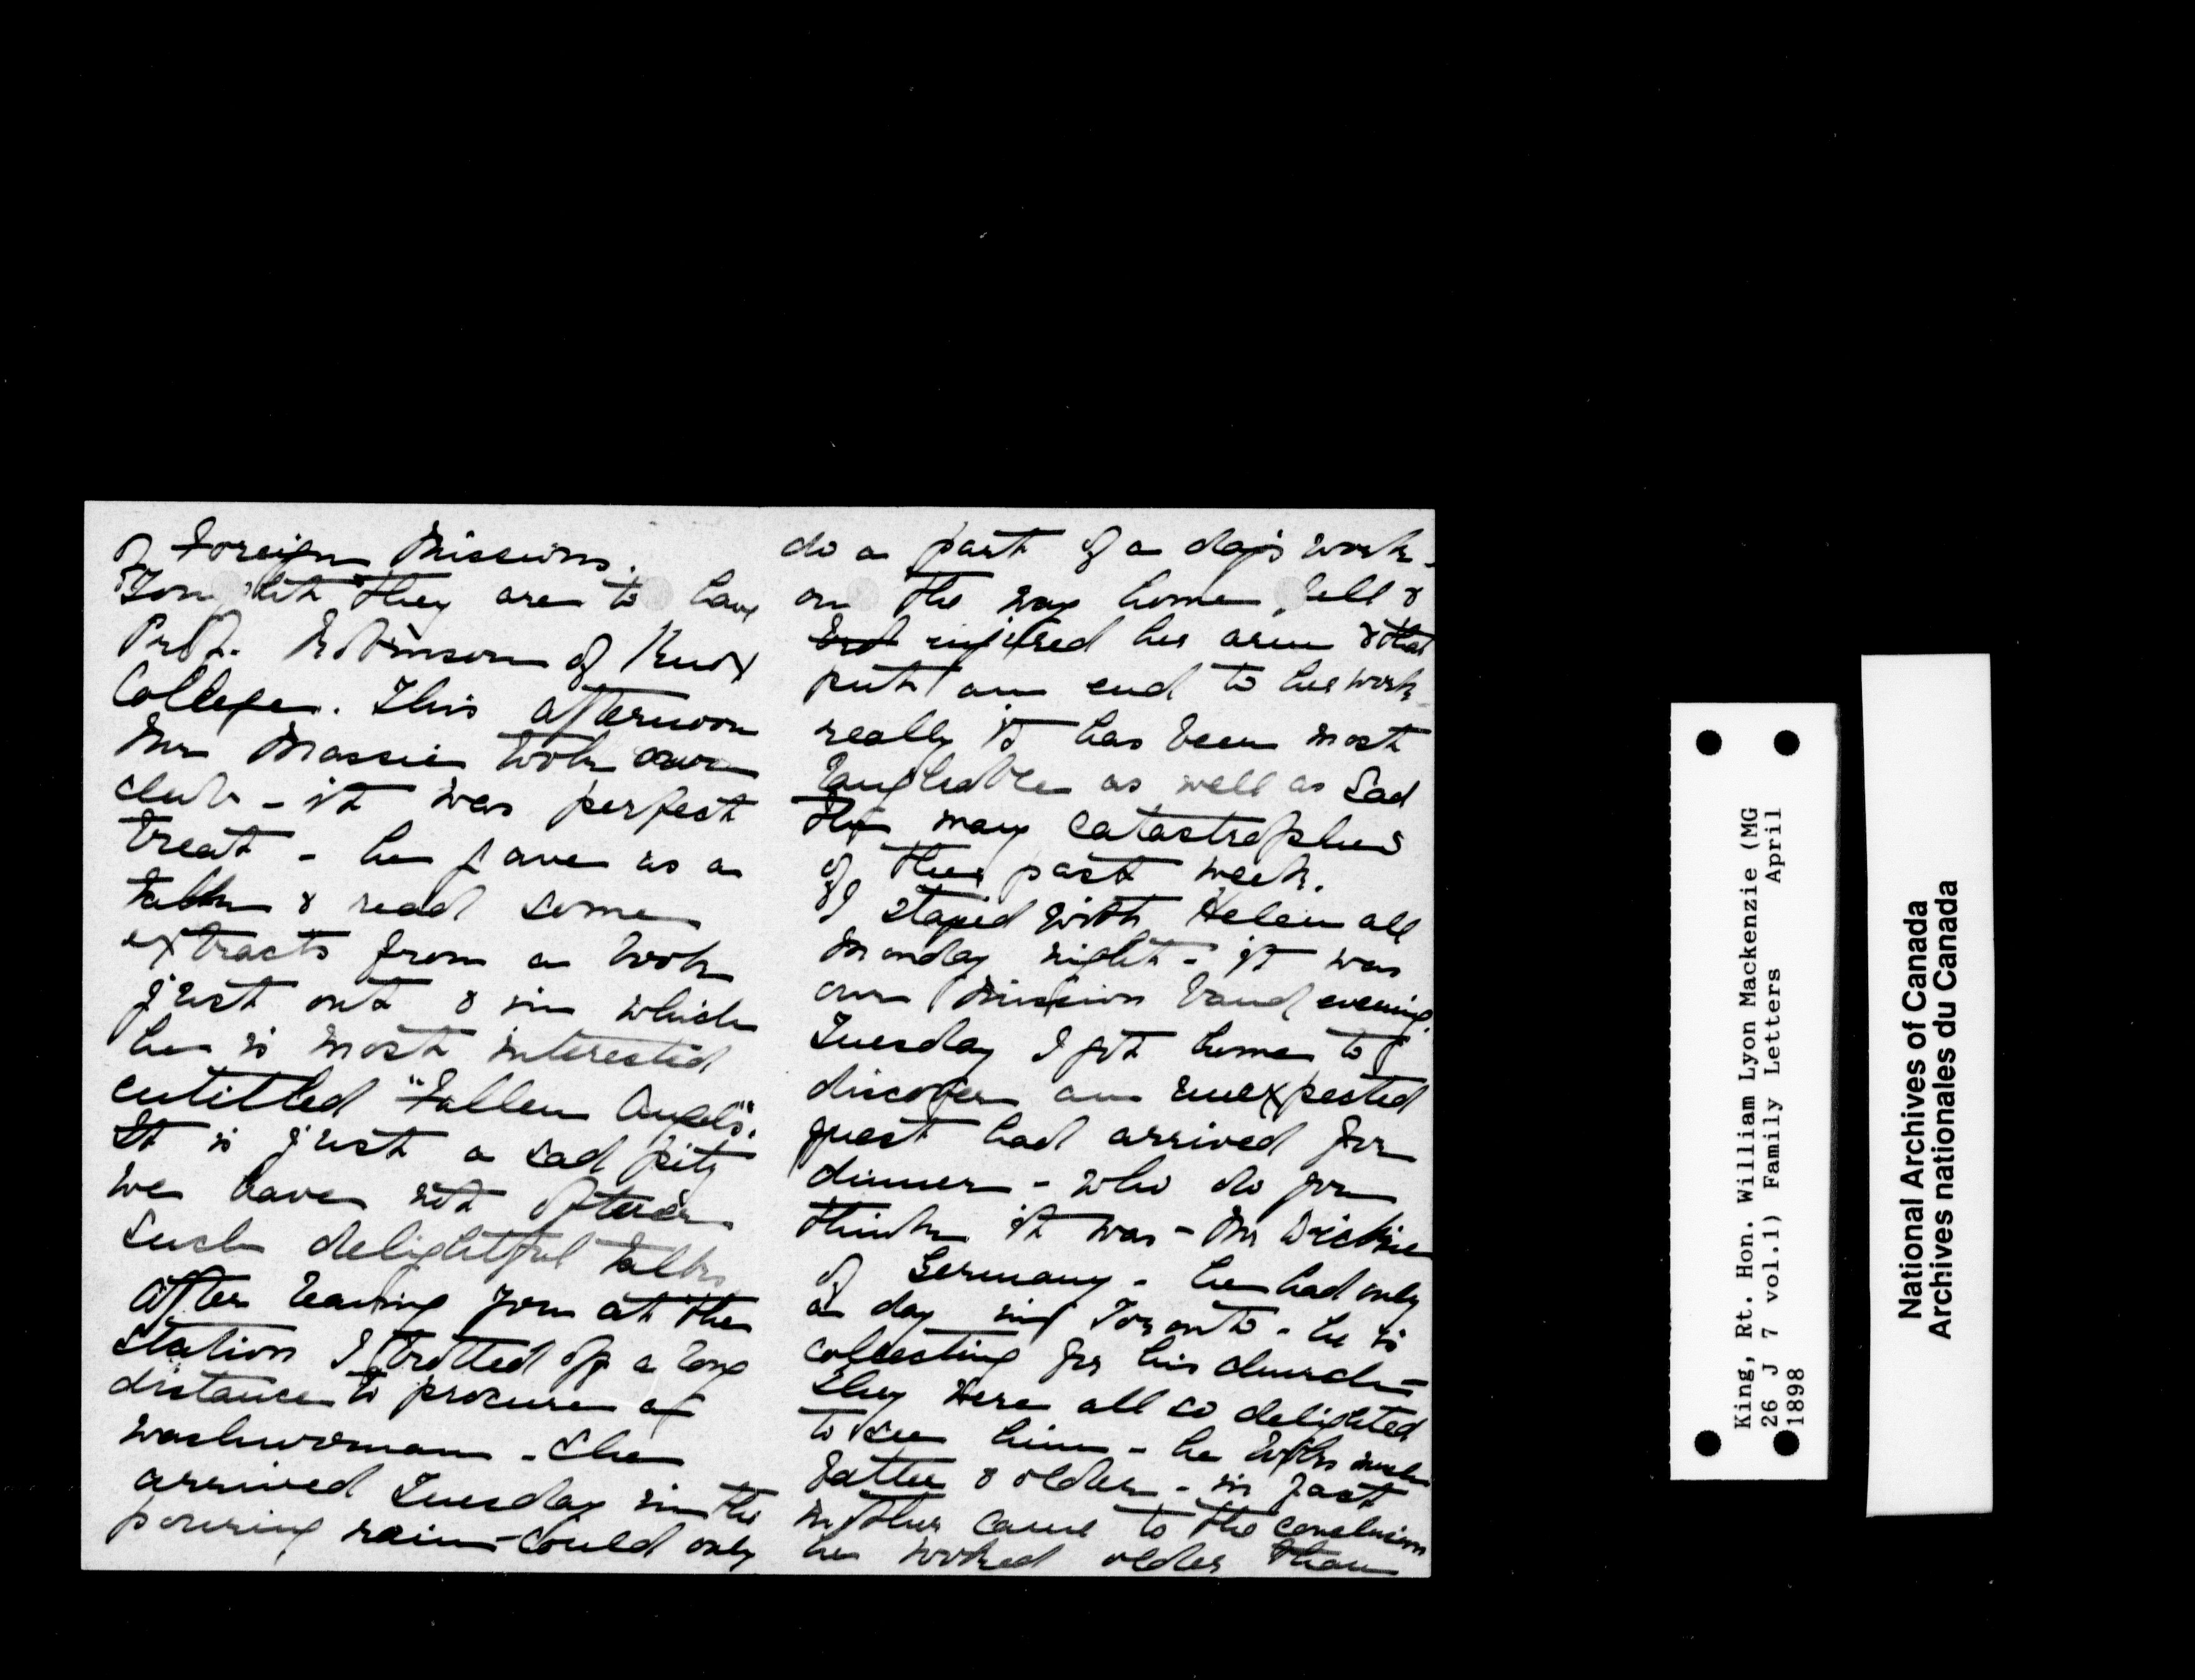 of Foreign Missions.
Tonight they are to have
Prof. Robinson of Knox
College. This afternoon
Mr Massie took our
club - it was perfect
treat - he gave us a
talk & read some
extracts from a book
just out & in which
he is most interested
entitled "Fallen Angels".
It is just a sad pity
we have not oftener
such delightful talks
After leaving you at the
station I trotted off a long
distance to procure a
washwoman - she
arrived Tuesday in the
pouring rain - could only
do a part of a day's work -
on the way home, fell &
injured her arm & that
put an end to her work
really it has been most
laughable as well as sad
the many catastrophes
of the past week.
I stayed with Helen all
Monday night - it was
our Mission Band evening.
Tuesday I got home to
discover an unexpected
guest had arrived for
dinner - who do you
think it was - Mr Dickie
of Germany - he had only
a day in Toronto - he is
collecting for his church -
They were all so delighted
to see him - he looks much
fatter & older - in fact
mother came to the conclusion
he looked older than
King, Rt. Hon. William Lyon Mackenzie (MG
26 J 7 vol.1) Family Letters April
1898
National Archives of Canada
Archives nationales du Canada